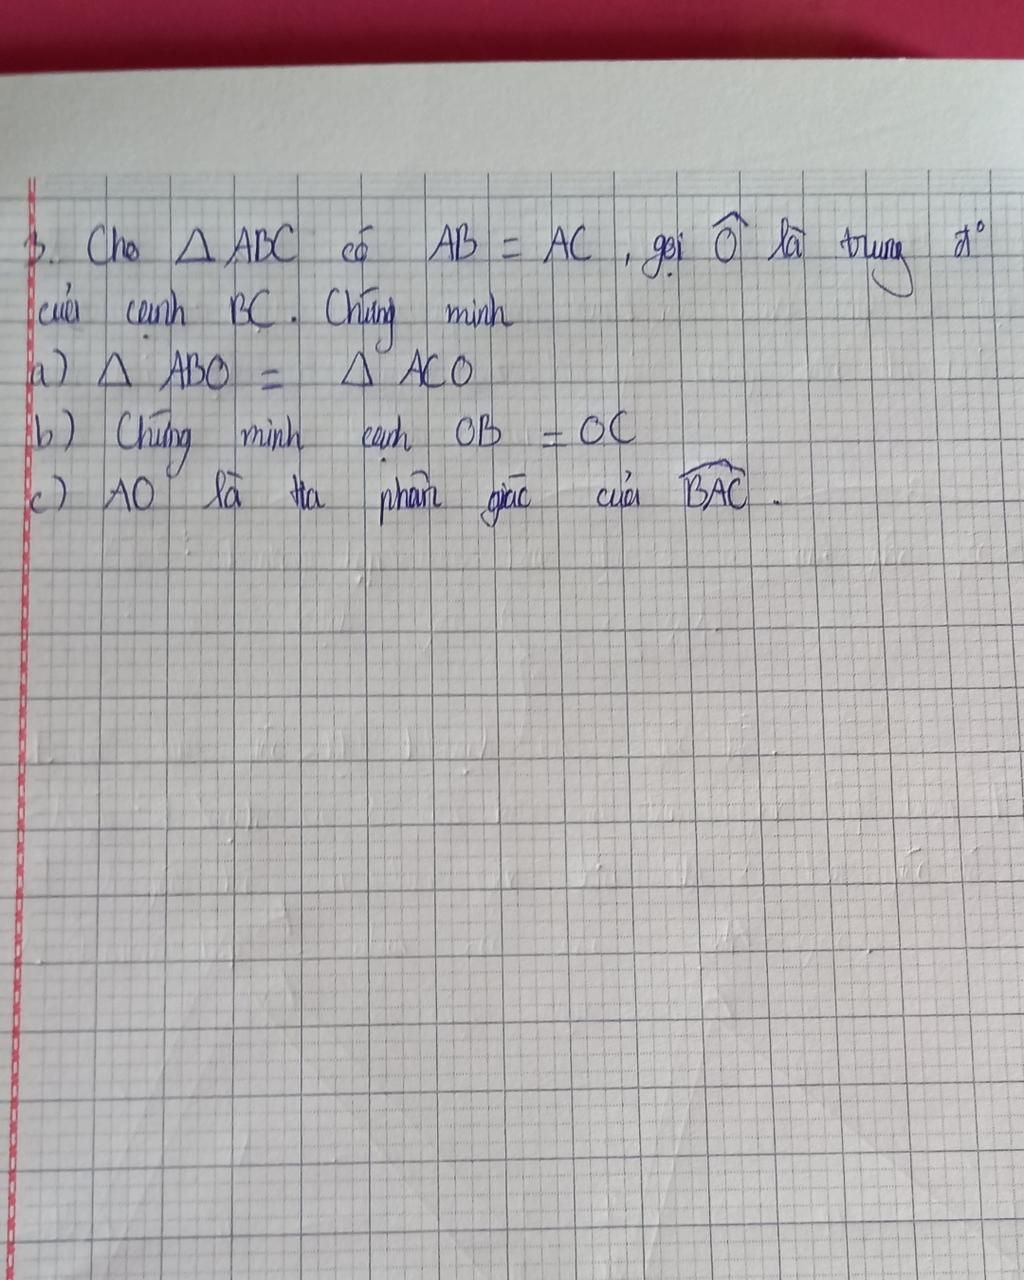 3. Cho Δ ABC có AB = AC, gọi Ô là trung đ°
của cạnh BC. Chứng minh
a) Δ ABO = Δ ACO
b) Chứng minh cạnh OB = OC
c) AO là tia phân giác của \widehat{BAC}.